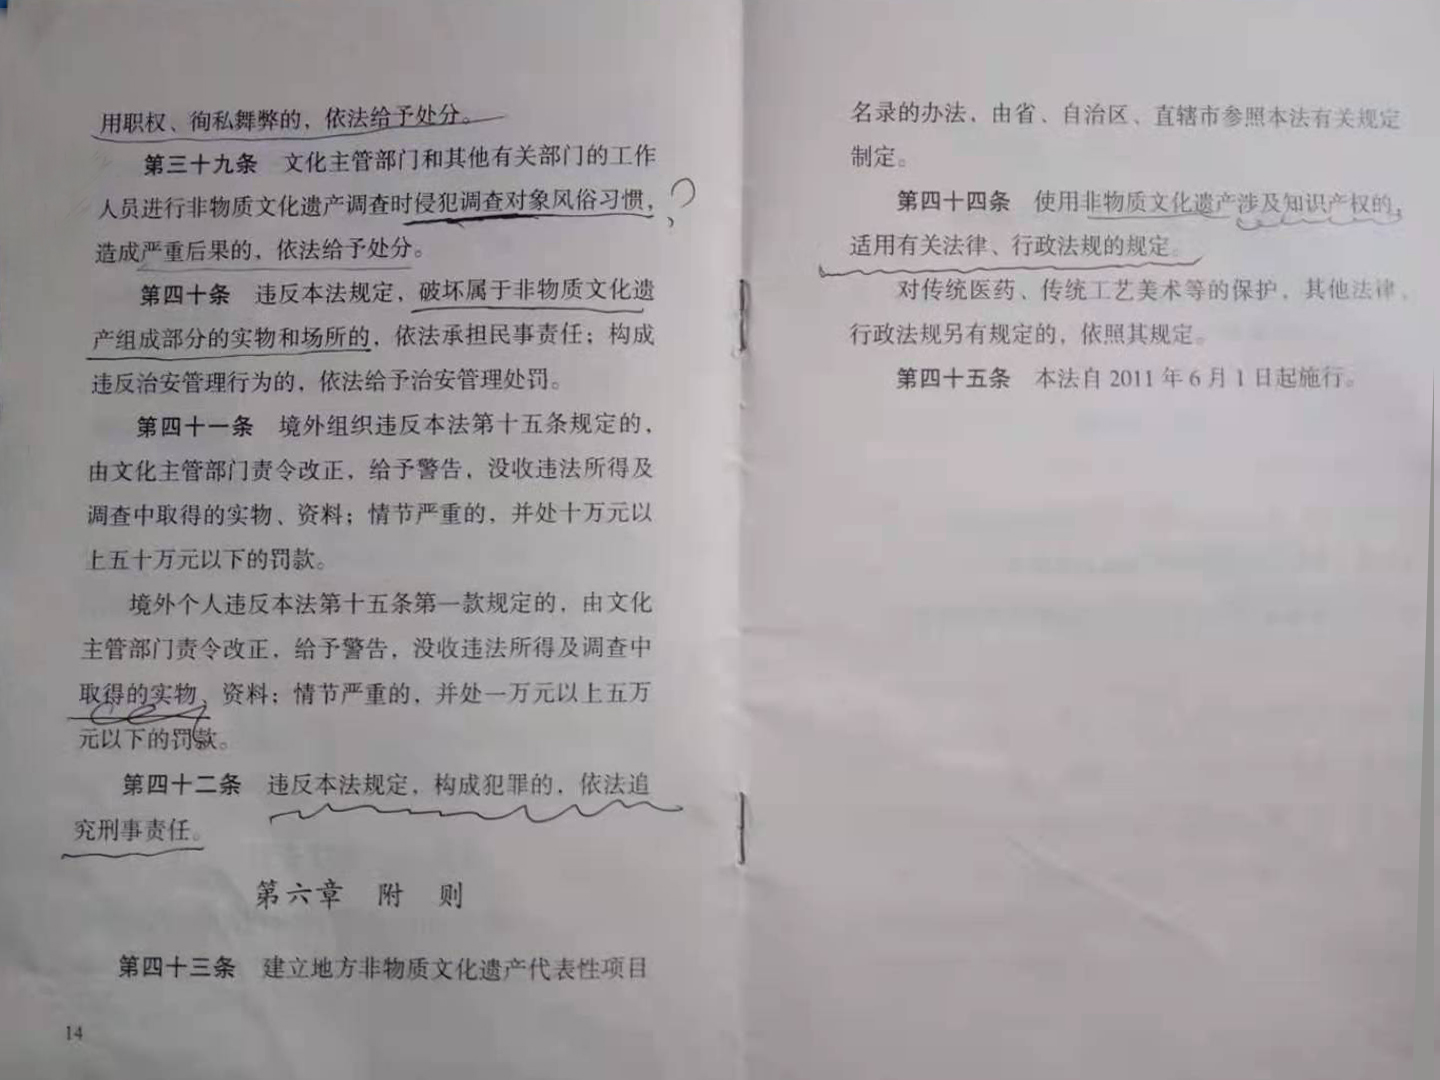 用职权、徇私舞弊的，依法给予处分。
第三十九条 文化主管部门和其他有关部门的工作
人员进行非物质文化遗产调查时侵犯调查对象风俗习惯，
?
造成严重后果的，依法给予处分。
第四十条 违反本法规定，破坏属于非物质文化遗
产组成部分的实物和场所的，依法承担民事责任；构成
违反治安管理行为的，依法给予治安管理处罚。
第四十一条 境外组织违反本法第十五条规定的，
由文化主管部门责令改正，给予警告，没收违法所得及
调查中取得的实物、资料；情节严重的，并处十万元以
上五十万元以下的罚款。
境外个人违反本法第十五条第一款规定的，由文化
主管部门责令改正，给予警告，没收违法所得及调查中
取得的实物、资料；情节严重的，并处一万元以上五万
元以下的罚款。
第四十二条 违反本法规定，构成犯罪的，依法追
究刑事责任。
第六章 附 则
第四十三条 建立地方非物质文化遗产代表性项目
14
名录的办法，由省、自治区、直辖市参照本法有关规定
制定。
第四十四条 使用非物质文化遗产涉及知识产权的，
适用有关法律、行政法规的规定。
对传统医药、传统工艺美术等的保护，其他法律、
行政法规另有规定的，依照其规定。
第四十五条 本法自 2011 年 6 月 1 日起施行。